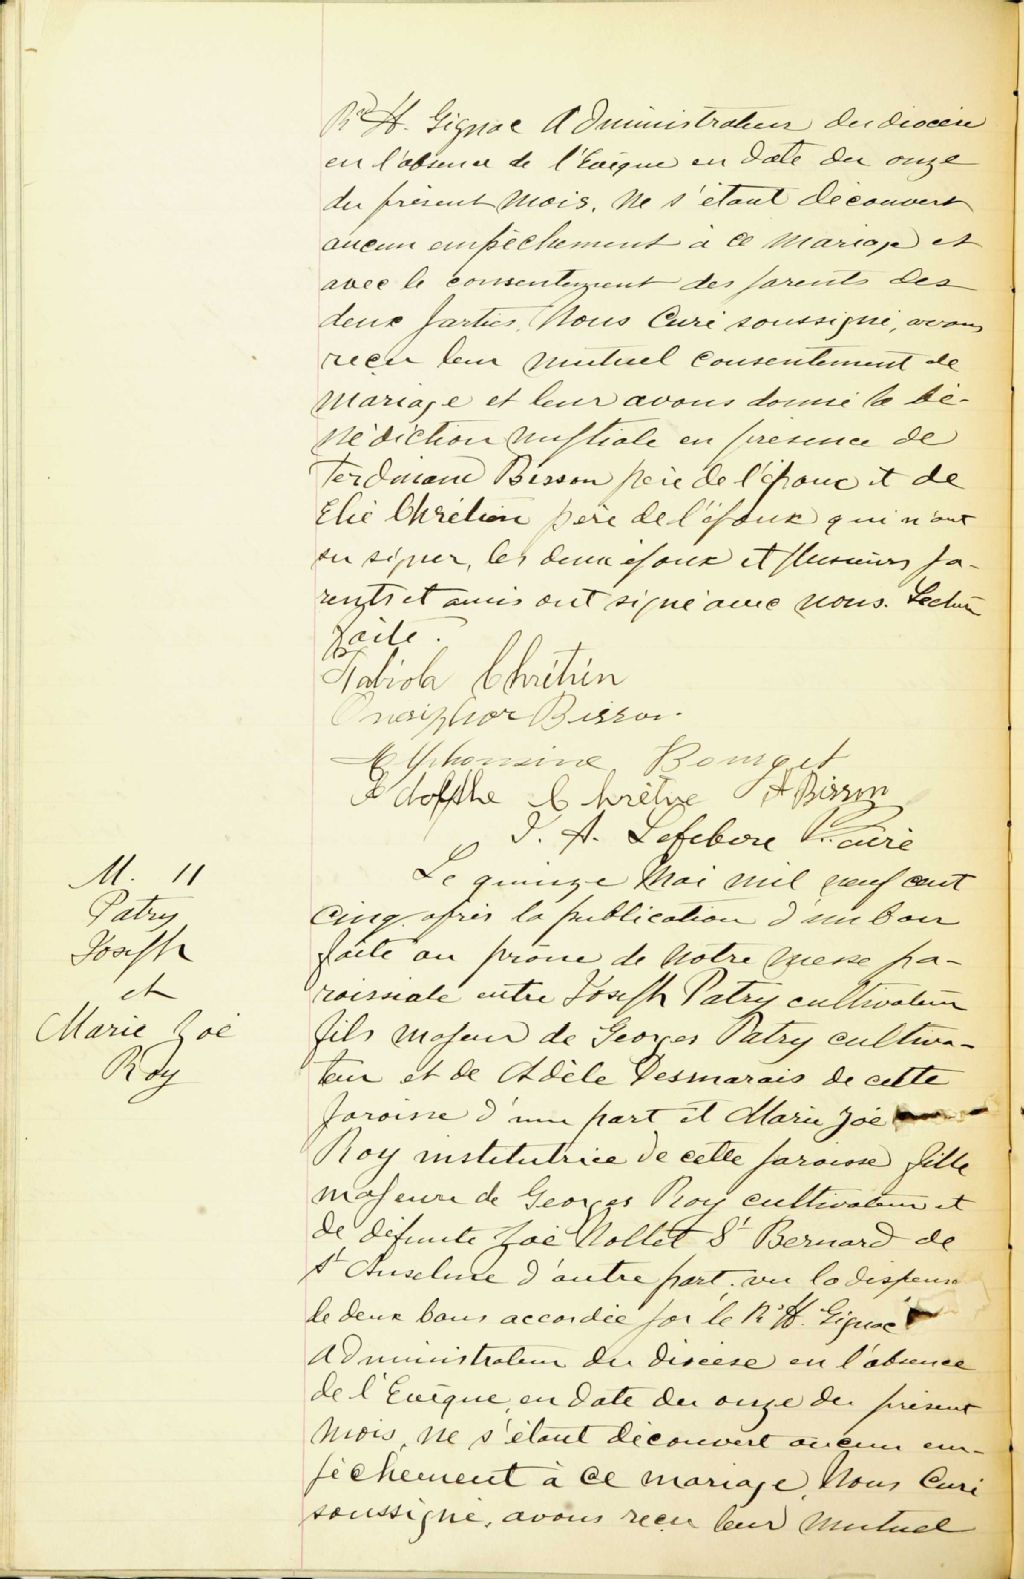 Rd H. Gignac Administrateur du diocèse
en l'absence de l'Evêque en date du onze
du présent mois, ne s'étant découvert
aucun empêchement à ce mariage et
avec le consentement des parents des
deux parties, Nous Curé soussigné, avons
reçu leur mutuel consentement de
mariage et leur avons donné la bé-
nédiction nuptiale en présence de
Ferdinand Bisson père de l'époux et de
Elie Chrétien père de l'épouse qui n'ont
su signer, les deux époux et plusieurs pa-
rents et amis ont signé avec nous. Lecture
faite.
Fabiola Chrétien
Onesiphor Bisson
Alphonsine Bourget
Adolphe Chrétien A Bisson
J. A. Lefebvre Ptre curé
M. 11
Patry
Joseph
et
Marie Zoé
Roy
Le quinze Mai mil neuf cent
cinq après la publication d'un ban
faite au prône de notre messe pa-
roissiale entre Joseph Patry cultivateur
fils majeur de Georges Patry cultiva-
teur et de Adèle Desmarais de cette
paroisse d'une part et Marie Zoé
Roy institutrice de cette paroisse fille
majeure de Georges Roy cultivateur et
de défunte Zoé Nollet St Bernard de
St Anselme d'autre part. vu la dispense
de deux bans accordée par le Rd H. Gignac
Administrateur du diocèse en l'absence
de l'Evêque, en date du onze du présent
mois, ne s'étant découvert aucun em-
pêchement à ce mariage, Nous Curé
soussigné, avons reçu leur mutuel